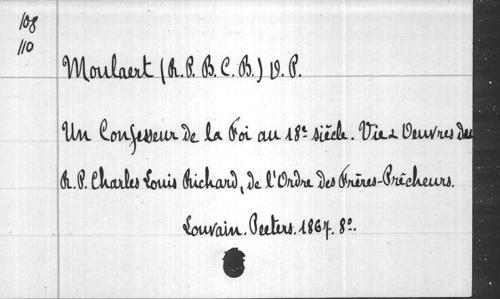 108
110
Moulaert (R. P. B. C. B.) O. P.
Un Confesseur de la Foi au 18e siècle. Vie & Oeuvres du
R. P. Charles Louis Richard, de l'Ordre des Frères-Prêcheurs.
Louvain. Peeters. 1867. 8o.